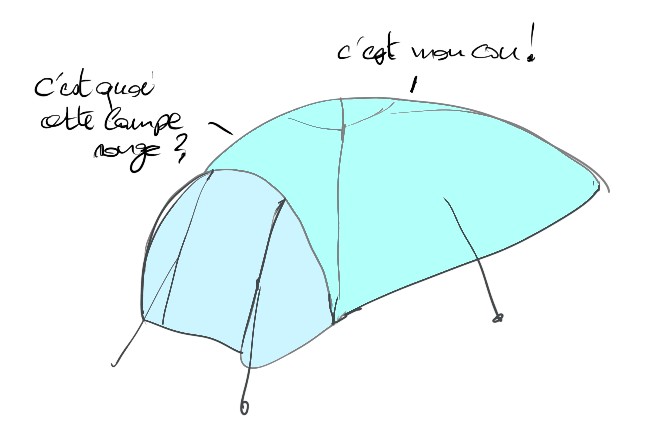 c'est quoi
cette lampe
rouge ?
c'est mon cou !